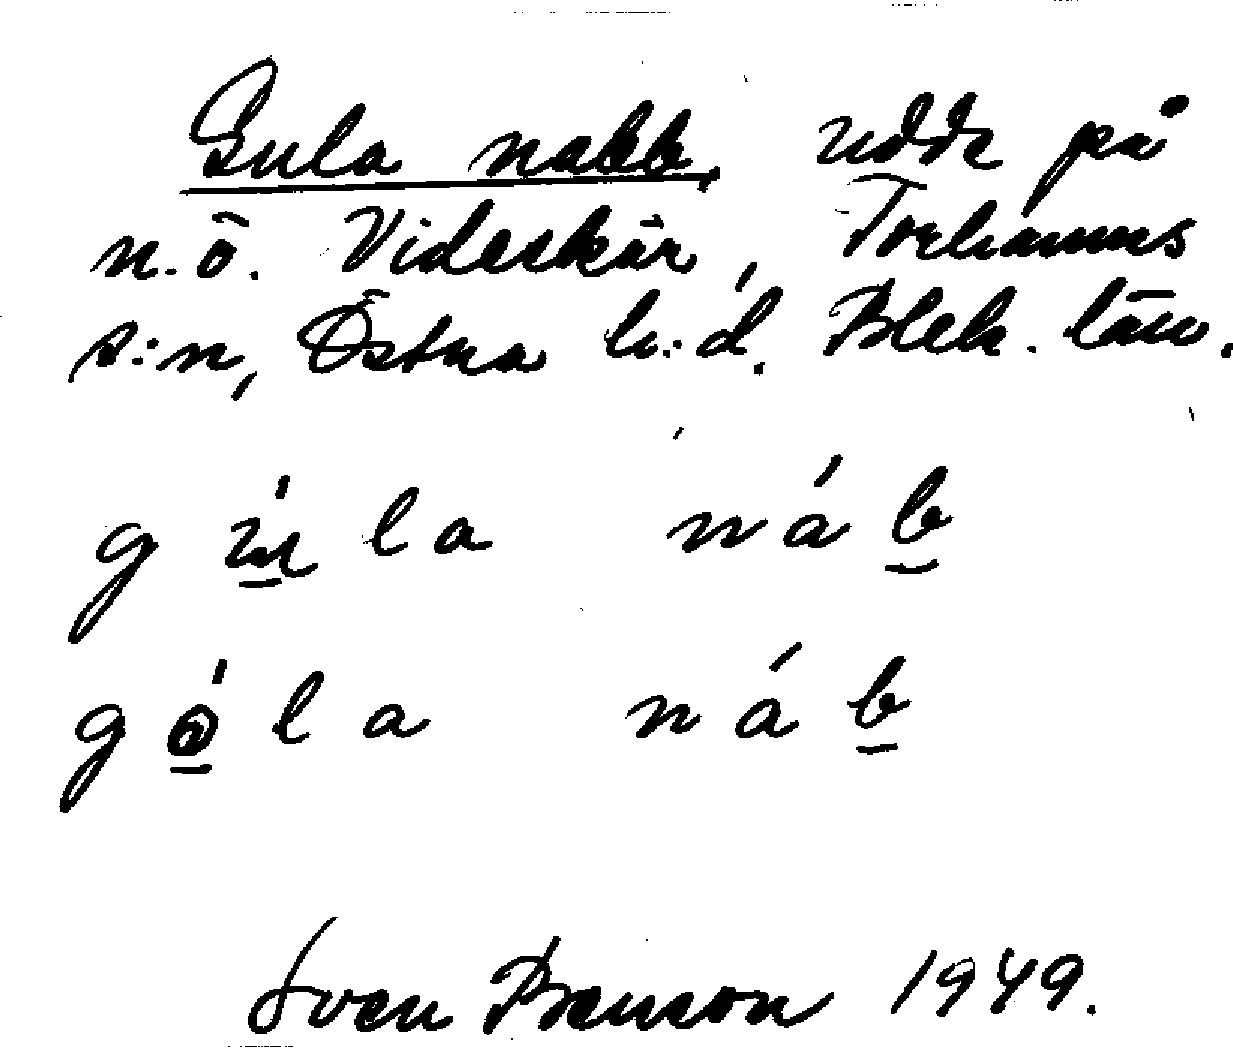 Gula nabb, udde på
n.ö. Videskär, Torhamns
s:n, Östra h:d. Blek. län.
gú̲la náb̲
gó̲la náb̲
Sven Benson 1949.